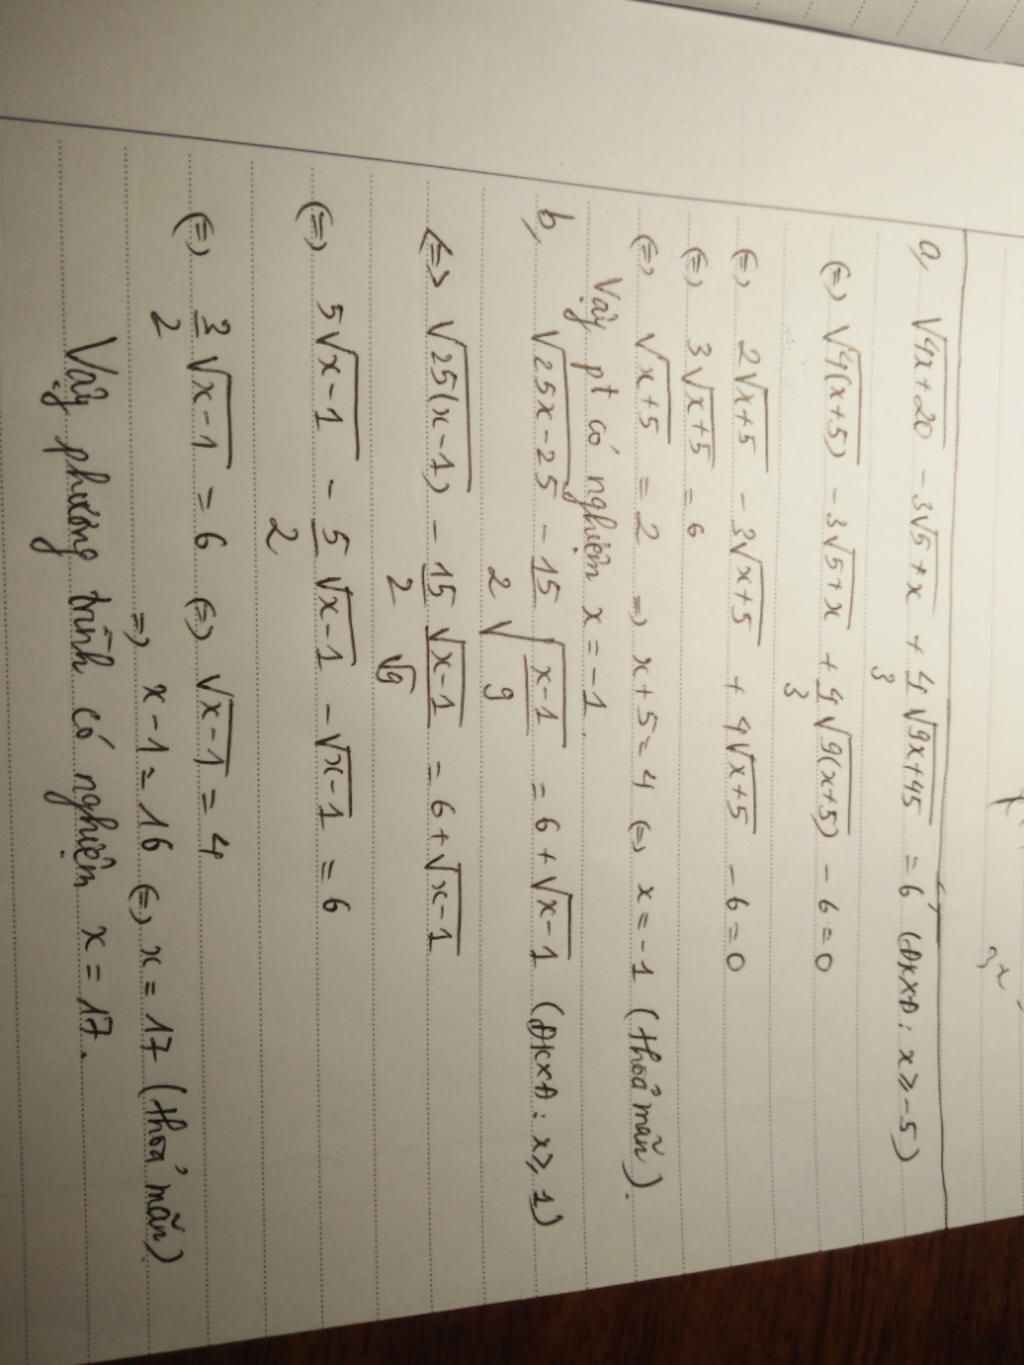 a, √4x+20 - 3√5+x + 4/3 √9x+45 = 6 (ĐKXĐ: x ≥ -5)
(=) √4(x+5) - 3√5+x + 4/3 √9(x+5) - 6 = 0
(=) 2√x+5 - 3√x+5 + 4√x+5 - 6 = 0
(=) 3√x+5 = 6
(=) √x+5 = 2 => x+5 = 4 (=) x = -1 (thoả mãn).
Vậy pt có nghiệm x = -1.
b, √25x-25 - 15/2 √x-1/9 = 6 + √x-1 (ĐKXĐ: x ≥ 1)
<=> √25(x-1) - 15/2 √x-1/√9 = 6 + √x-1
(=) 5√x-1 - 5/2 √x-1 - √x-1 = 6
(=) 3/2 √x-1 = 6 (=) √x-1 = 4
=> x-1 = 16 (=) x = 17 (thoả mãn)
Vậy phương trình có nghiệm x = 17.